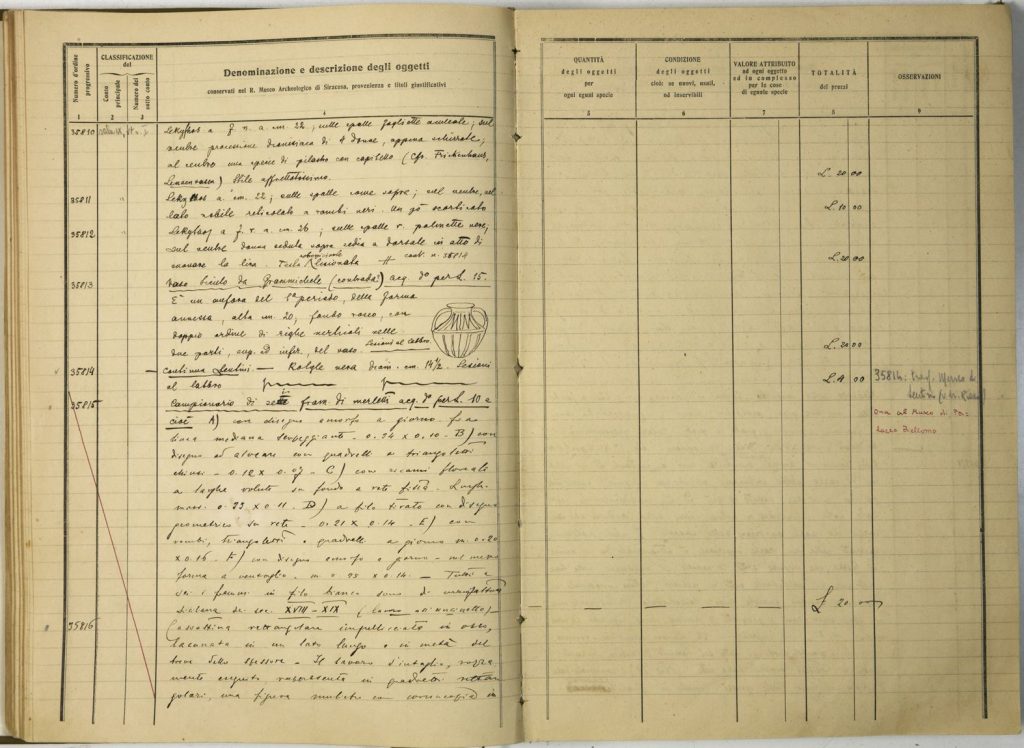 Numero d'ordine progressivo
CLASSIFICAZIONE
del
Conto principale
Numero del sotto conto
Denominazione e descrizione degli oggetti
conservati nel R. Museo Archeologico di Siracusa, provenienza e titoli giustificativi
1 2 3 4
35810 Lekythos a f. n. a. cm. 22; sulle spalle foglioline nucleate; sul
ventre processione dionisiaca di 4 donne, appena schizzate;
al centro una specie di pilastro con capitello (Cfr. Frickenhaus,
Lenaenvasen) Stile affrettatissimo.
35811 Lekythos a. cm. 22; sulle spalle come sopra; sul ventre, nel
lato nobile reticolato a rombi neri. Un pò scorticato
35812 Lekythos a f. n. a cm. 26; sulle spalle 5 palmette nere;
sul ventre donna seduta sopra sedia a dorsale in atto di
suonare la lira. Tutta lesionata # cont. n. 35814
35813 Vaso siculo da Grammichele (contrada?) acq. to per L. 15.
È un anfora del 1° periodo, della forma
annessa, alta cm. 20, fondo roseo, con
doppio ordine di righe verticali nelle
due parti, sup. ed infer., del vaso. Lesioni al labbro.
35814 Continua Lentini — Kotyle nera diam. cm. 14 1/2. Lesioni
al labbro
35815 Campionario di sei fram. di merletti acq. to per L. 10 e
cioè A) con disegno amorfo a giorno fra
linea mediana serpeggiante - 0.24 x 0.10 - B) con
disegno ad alveare con quadrelli e triangoletti
chiusi - 0.12 x 0.07 - C) con ricami floreali
a larghe volute su fondo a rete fissa. Lungh.
mass. 0.23 x 0.11 - D) a filo tirato con disegno
geometrico su rete - 0.21 x 0.14 - E) con
rombi, triangoletti e quadrelli a giorno m. 0.20
x 0.16 - F) con disegno amorfo a giorno - nel mezzo
forma a ventaglio - m. 0.25 x 0.14. — Tutti e
sei i pezzi in filo bianco sono di manifattura
siciliana dei sec. XVIII - XIX (lavoro all'uncinetto)
35816 Cassettina rettangolare impellicciata in osso,
lacunata in un lato lungo e in metà del
breve dello spessore - Il lavoro d'intaglio, rozza
mente eseguito, rappresenta in quadretti rettan
golari, una figura muliebre con cornucopia in
QUANTITÀ
degli oggetti
per
ogni eguali specie
5
CONDIZIONE
degli oggetti
cioè: se nuovi, usati,
od inservibili
6
VALORE ATTRIBUITO
ad ogni oggetto
od in complesso
per le cose
di eguale specie
7
TOTALITÀ
dei prezzi
8
OSSERVAZIONI
9
L. 20 00
L. 10 00
L. 20 00
L. 20 00
L. 4 00
35814: trasf. Museo di
Lentini
ora al Museo di Pa-
lazzo Bellomo
L. 20